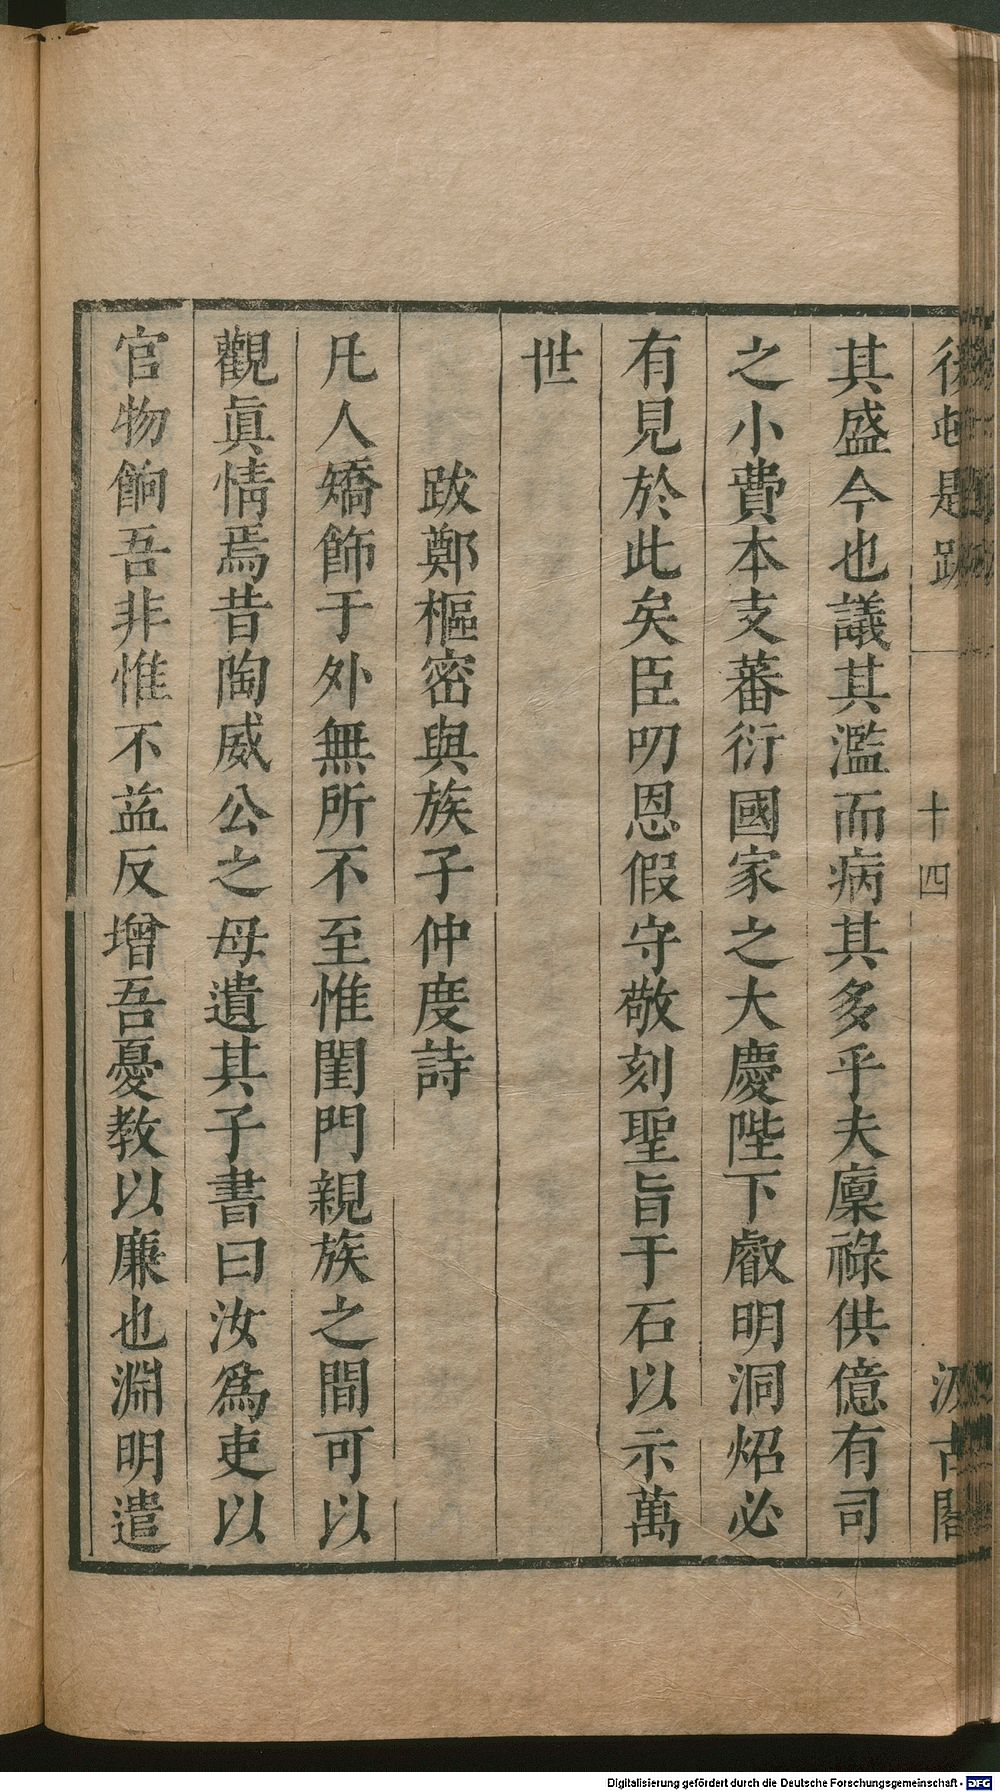 後邨題跋 十四 汲古閣
其盛今也議其濫而病其多乎夫廩祿供億有司
之小費本支蕃衍國家之大慶陛下叡明洞炤必
有見於此矣臣叨恩假守敬刻聖旨于石以示萬
世
跋鄭樞密與族子仲度詩
凡人矯飾于外無所不至惟閨門親族之間可以
觀眞情焉昔陶威公之母遺其子書曰汝爲吏以
官物餉吾非惟不益反增吾憂教以廉也淵明遣
Digitalisierung gefördert durch die Deutsche Forschungsgemeinschaft - DFG